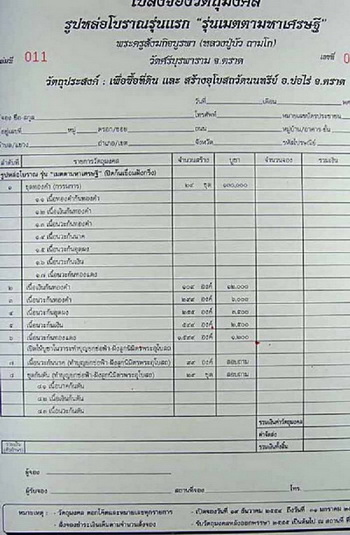 ใบสั่งจองวัตถุมงคล
รูปหล่อโบราณรุ่นแรก "รุ่นเมตตามหาเศรษฐี"
พระครูสังฆกิจบูรพา (หลวงปู่บัว ถามโก)
เล่มที่ 011 วัดศรีบูรพาราม จ.ตราด เลขที่
วัตถุประสงค์ : เพื่อซื้อที่ดิน และ สร้างอุโบสถวัดนนทรีย์ อ.บ่อไร่ จ.ตราด
วันที่ เดือน
ชื่อ-สกุล โทรศัพท์ หมายเลขบัตรประชาชน
อยู่เลขที่ หมู่ ตรอก/ซอย ถนน หมู่บ้าน/อาคาร ชั้น
ตำบล/แขวง อำเภอ/เขต จังหวัด รหัสไปรษณีย์
ลำดับที่ รายการวัตถุมงคล จำนวนสร้าง บูชา จำนวนจอง รวมเงิน
รูปหล่อโบราณ รุ่น "เมตตามหาเศรษฐี"
๑ ชุดทองคำ (กรรมการ) ๒๙ ชุด
๑.๑ เนื้อทองคำก้นทองคำ
๑.๒ เนื้อเงินก้นทองคำ
๑.๓ เนื้อนวะก้นทองคำ
๑.๔ เนื้อนวะก้นนาค
๑.๕ เนื้อนวะก้น
๑.๖ เนื้อนวะก้นเงิน
๑.๗ เนื้อนวะก้นทองแดง
๒ เนื้อเงินก้นทองคำ ๑๐๙ องค์ ๑๒,๐๐๐
๓ เนื้อนวะก้นทองคำ ๒๙๙ องค์ ๖,๐๐๐
๔ เนื้อนวะก้น องค์ ๓,๕๐๐
๕ เนื้อนวะก้นเงิน ๕๙๙ องค์ ๒,๕๐๐
๖ เนื้อนวะก้นทองแดง ๑,๕๙๙ องค์ ๑,๒๐๐
๗ เนื้อนวะก้นนาค (ทำบุญยกช่อฟ้า-ฝังลูกนิมิตรพระอุโบสถ) ๙๙ องค์ สอบถาม
๘ ชุดก้นตัน (ทำบุญยกช่อฟ้า-ฝังลูกนิมิตรพระอุโบสถ) ๒๙ ชุด สอบถาม
๘.๑ เนื้อนาคก้นตัน
๘.๒ เนื้อเงินก้นตัน
๘.๓ เนื้อนวะก้นตัน
รวมเงินค่าวัตถุมงคล
ค่าจัดส่ง
รวมเงิน รวมเงินทั้งสิ้น
ผู้จอง
ผู้รับจอง สถานที่จอง โทร
หมายเหตุ : - วัตถุมงคล ตอกโค๊ตและหมายเลขทุกรายการ - เปิดจองวันที่ ๑๙ ธันวาคม ๒๕๕๔ ถึงวันที่ ๓๑ มกราคม
- สั่งจองชำระเงินเต็มตามจำนวนสั่งจอง - รับวัตถุมงคลหลังออกพรรษา ๒๕๕๕ เป็นต้นไป ณ สถานที่